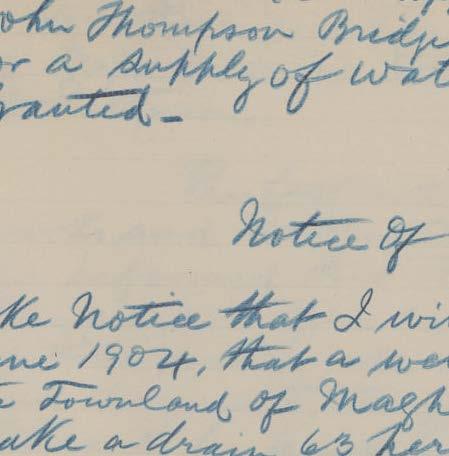 ohn Thompson Bridge
or a supply of wat
ranted. -
Notice Of
ke Notice that I wi
une 1904, that a we
e Townland of Magh
ake a drain 63 per